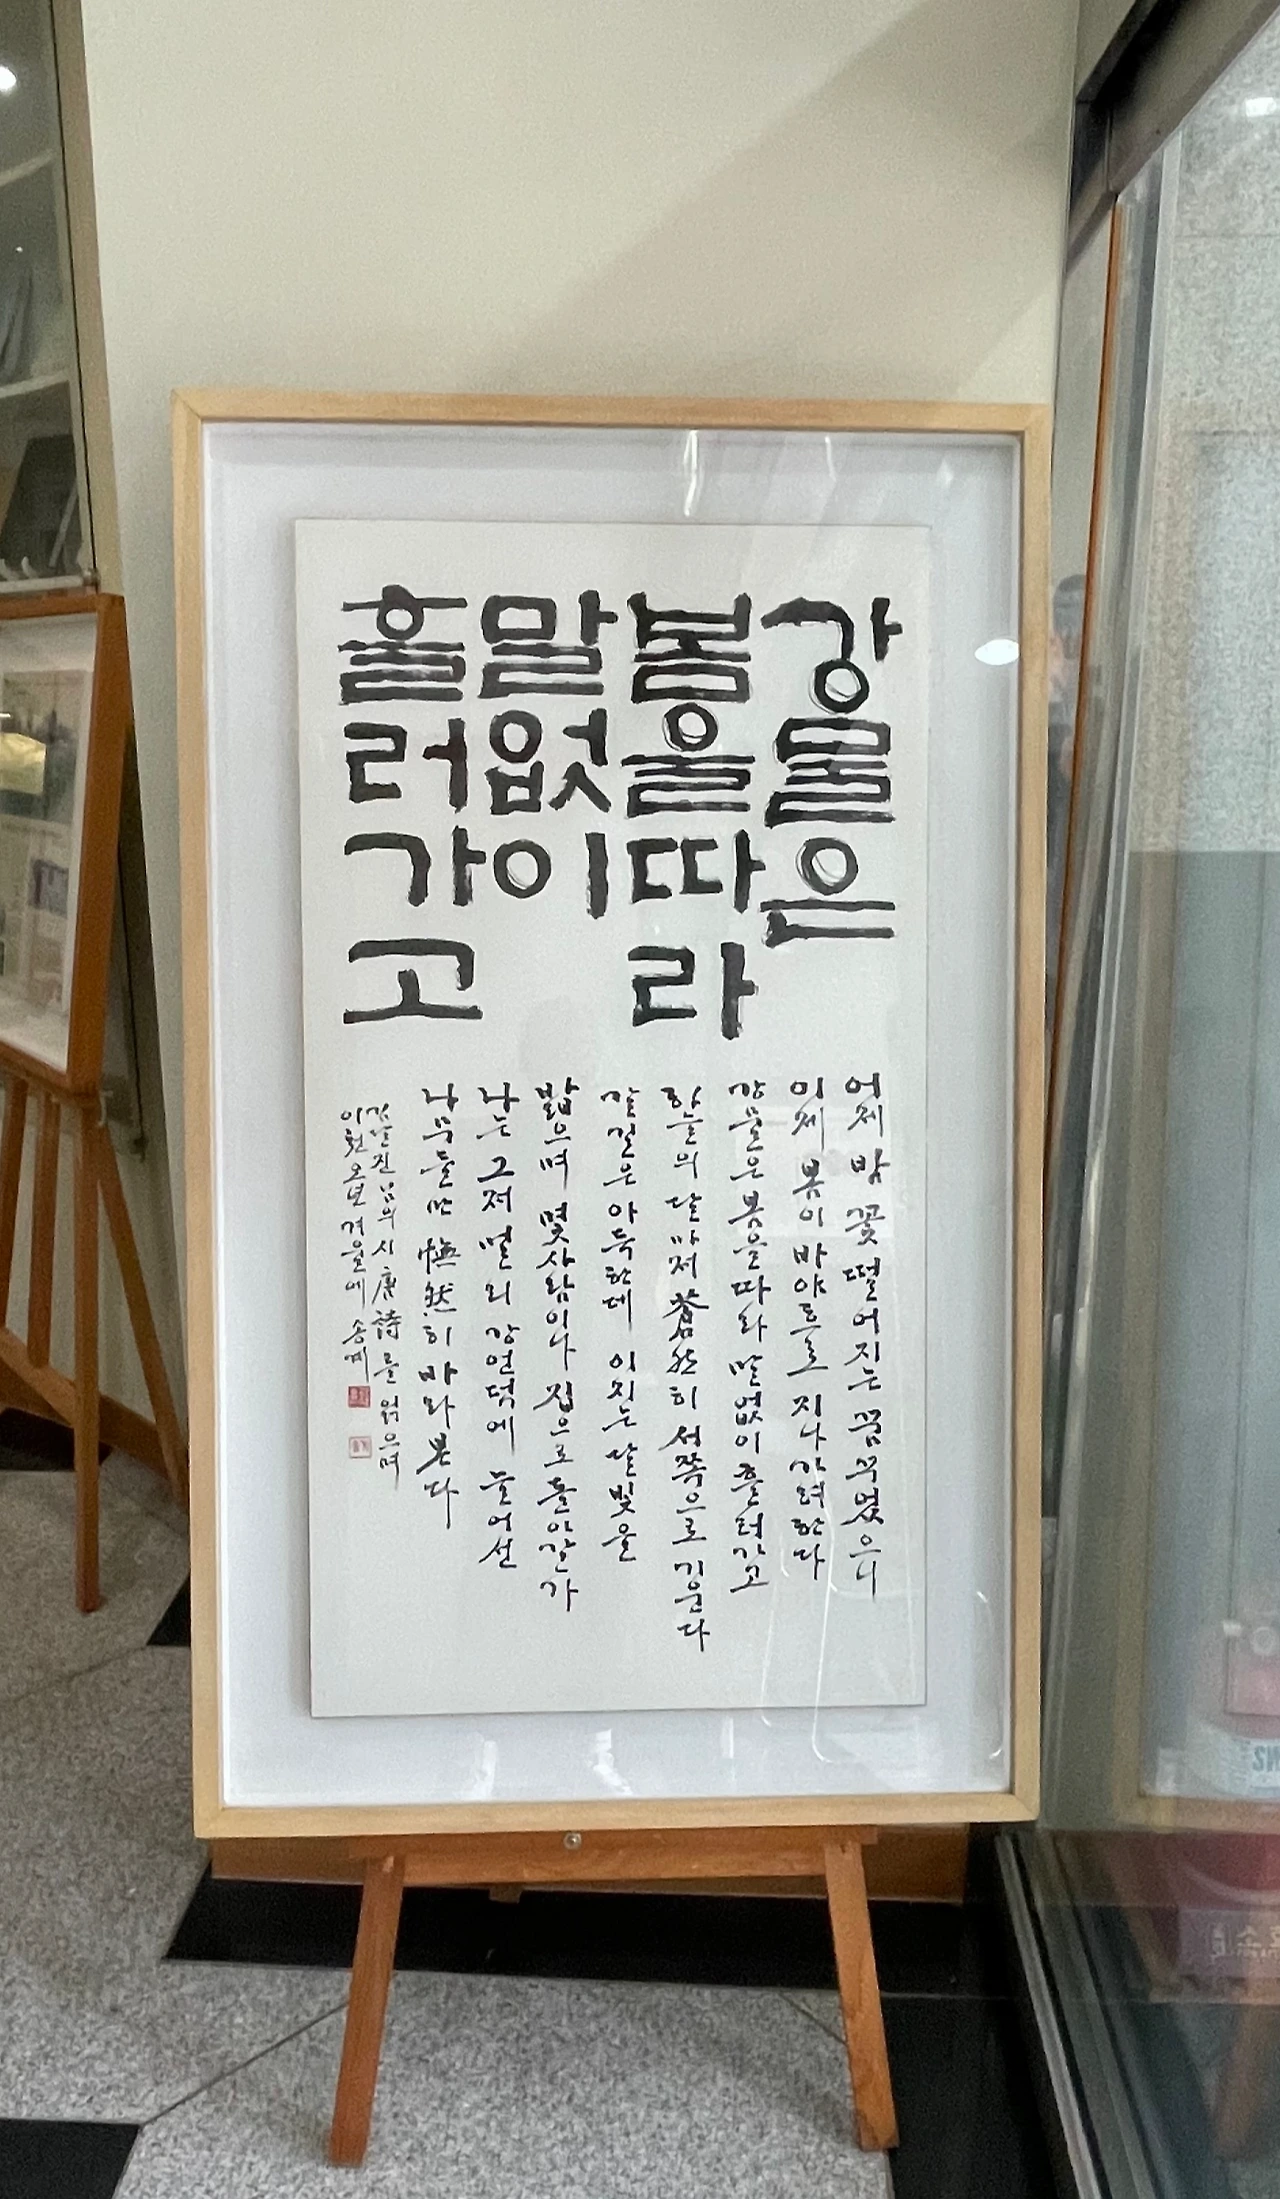 강물은
봄을따라
말없이
흘러가고
어제 밤 꽃 떨어지는 꿈 꾸었으니
이제 봄이 바야흐로 지나가려한다
강물은 봄을 따라 말없이 흘러가고
하늘의 달마저 蒼然히 서쪽으로 기운다
갈길은 아득한데 이지는 달빛을
밟으며 몇사람이나 집으로 돌아갈가
나는 그저 멀리 강언덕에 늘어선
나무들만 憮然히 바라본다
김달진님의 시 唐詩를 읽으며
이천오년 겨울에 송계